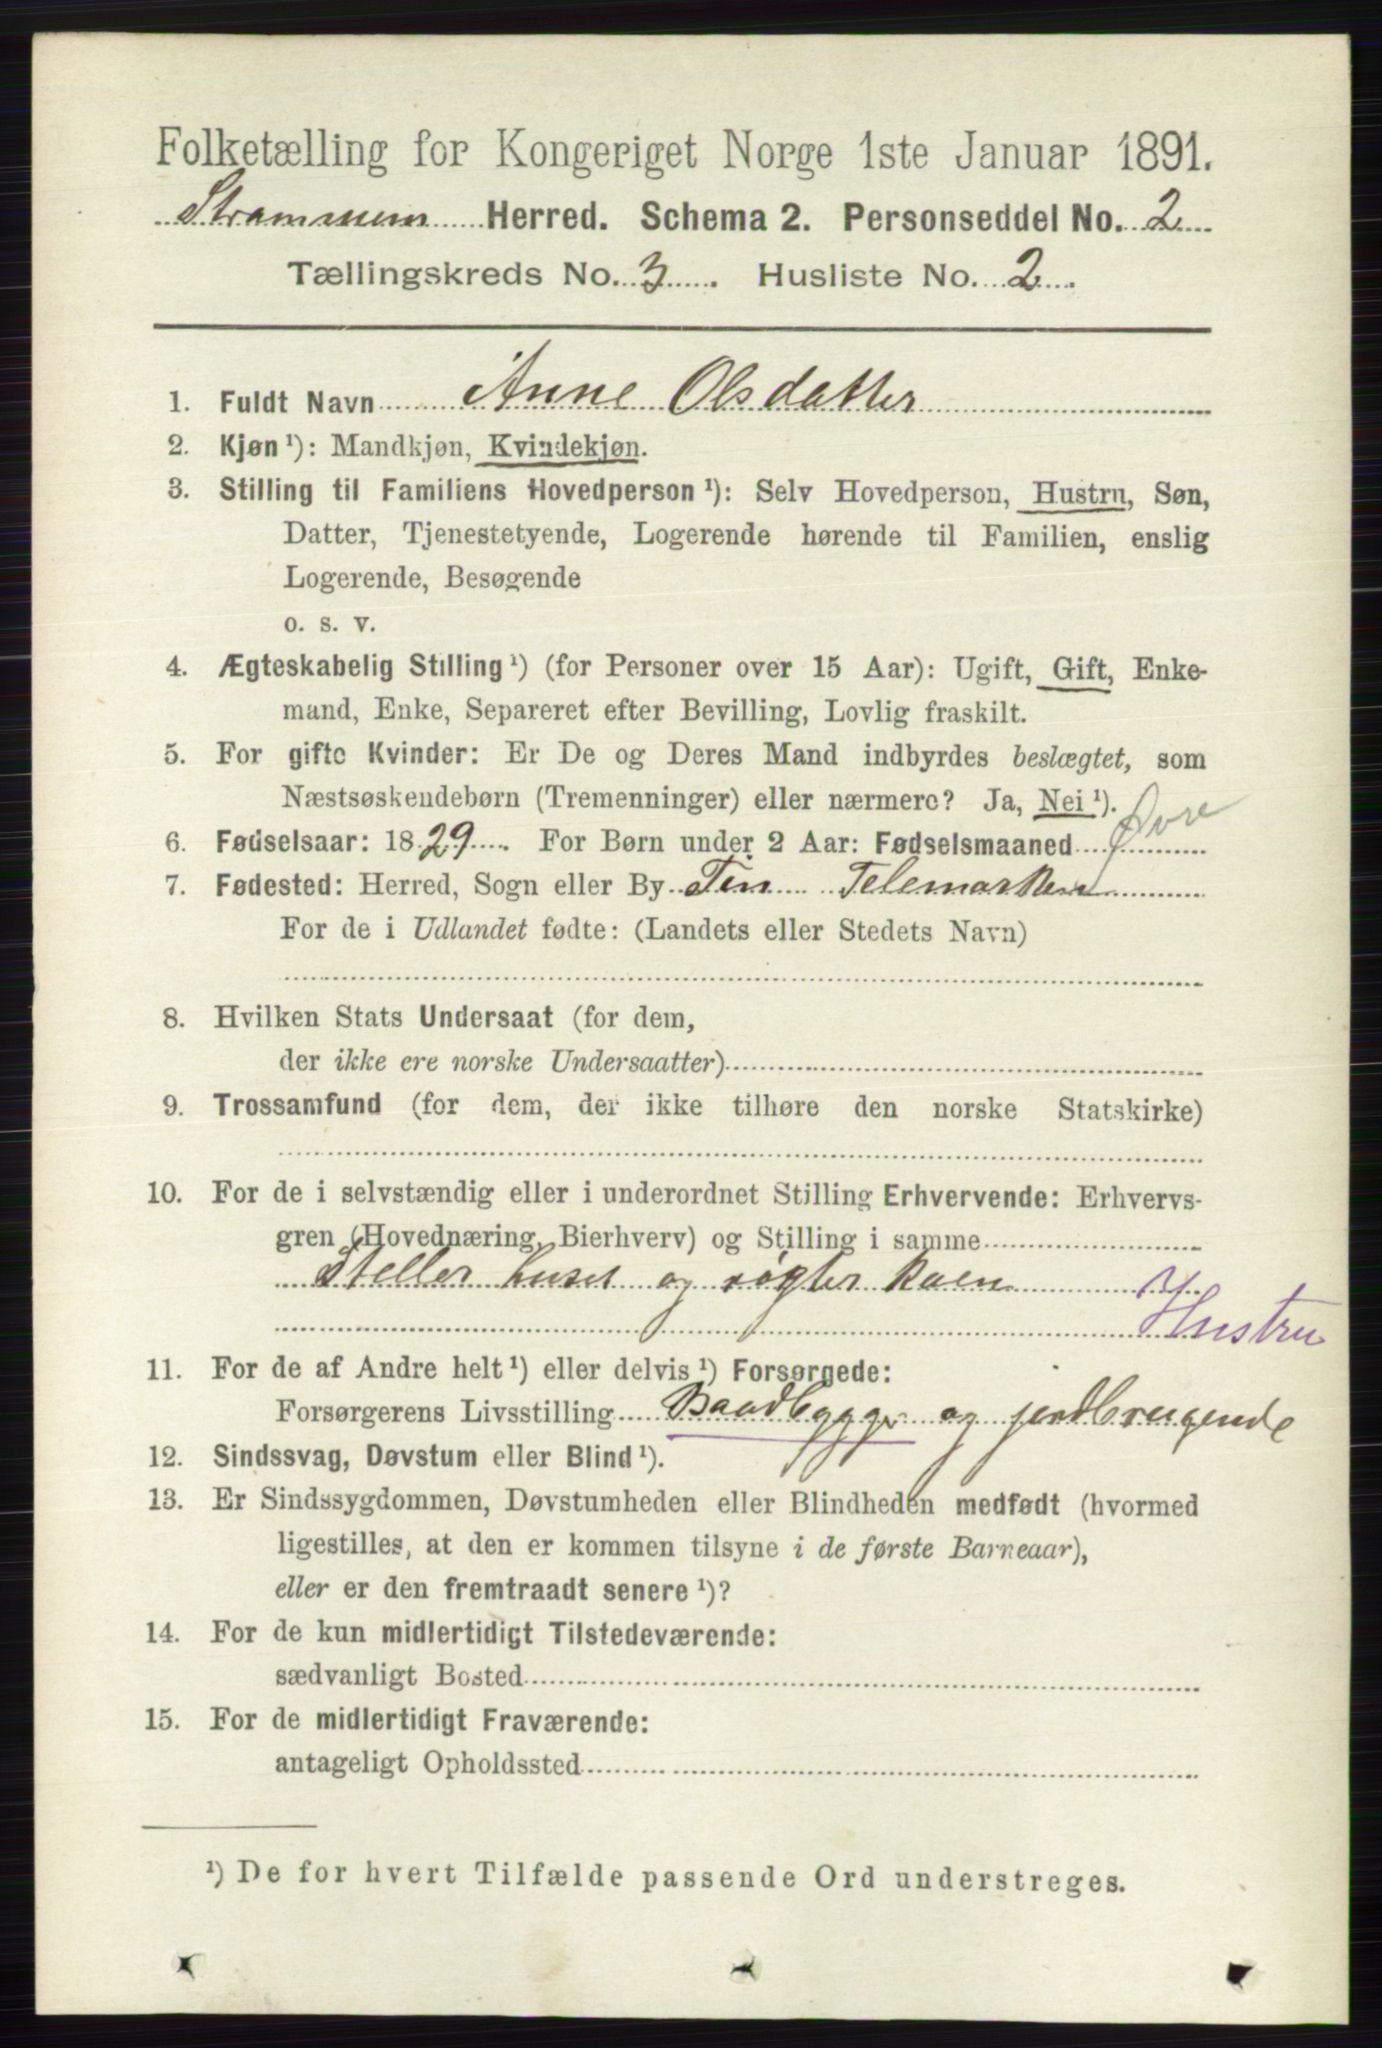 Folketælling for Kongeriget Norge 1ste Januar 1891.
Strømmem Herred. Schema 2. Personseddel No. 2
Tællingskreds No. 3. Husliste No. 2.
1. Fuldt Navn Anne Olsdatter
2. Kjøn ¹): Mandkjøn, Kvindekjøn.
3. Stilling til Familiens Hovedperson ¹): Selv Hovedperson, Hustru, Søn,
Datter, Tjenestetyende, Logerende hørende til Familien, enslig
Logerende, Besøgende
o. s. v.
4. Ægteskabelig Stilling ¹) (for Personer over 15 Aar): Ugift, Gift, Enke-
mand, Enke, Separeret efter Bevilling, Lovlig fraskilt.
5. For gifte Kvinder: Er De og Deres Mand indbyrdes beslægtet, som
Næstsøskendebørn (Tremenninger) eller nærmere? Ja, Nei ¹).
Øvre
6. Fødselsaar: 1829. For Børn under 2 Aar: Fødselsmaaned
7. Fødested: Herred, Sogn eller By Tin Telemarken
For de i Udlandet fødte: (Landets eller Stedets Navn)
8. Hvilken Stats Undersaat (for dem,
der ikke ere norske Undersaatter)
9. Trossamfund (for dem, der ikke tilhøre den norske Statskirke)
10. For de i selvstændig eller i underordnet Stilling Erhvervende: Erhvervs-
gren (Hovednæring, Bierhverv) og Stilling i samme
Steller huset og røgter koen
Hustru
11. For de af Andre helt ¹) eller delvis ¹) Forsørgede:
Forsørgerens Livsstilling Baadbygger og jordbrugende
12. Sindssvag, Døvstum eller Blind ¹).
13. Er Sindssygdommen, Døvstumheden eller Blindheden medfødt (hvormed
ligestilles, at den er kommen tilsyne i de første Barneaar),
eller er den fremtraadt senere ¹)?
14. For de kun midlertidigt Tilstedeværende:
sædvanligt Bosted
15. For de midlertidigt Fraværende:
antageligt Opholdssted
¹) De for hvert Tilfælde passende Ord understreges.